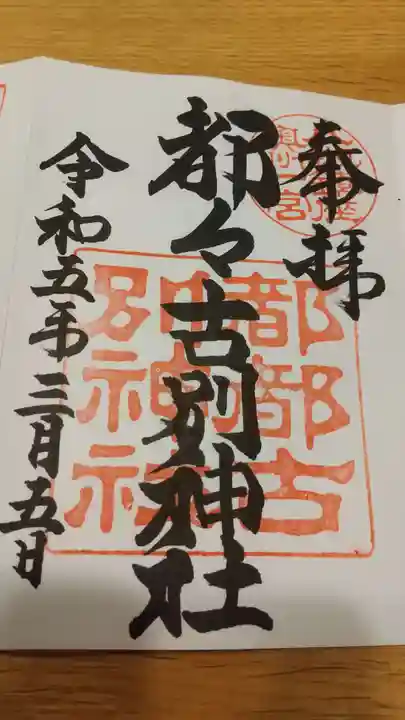 奉拝
都々古別神社
令和五年三月五日
都都古
別神社